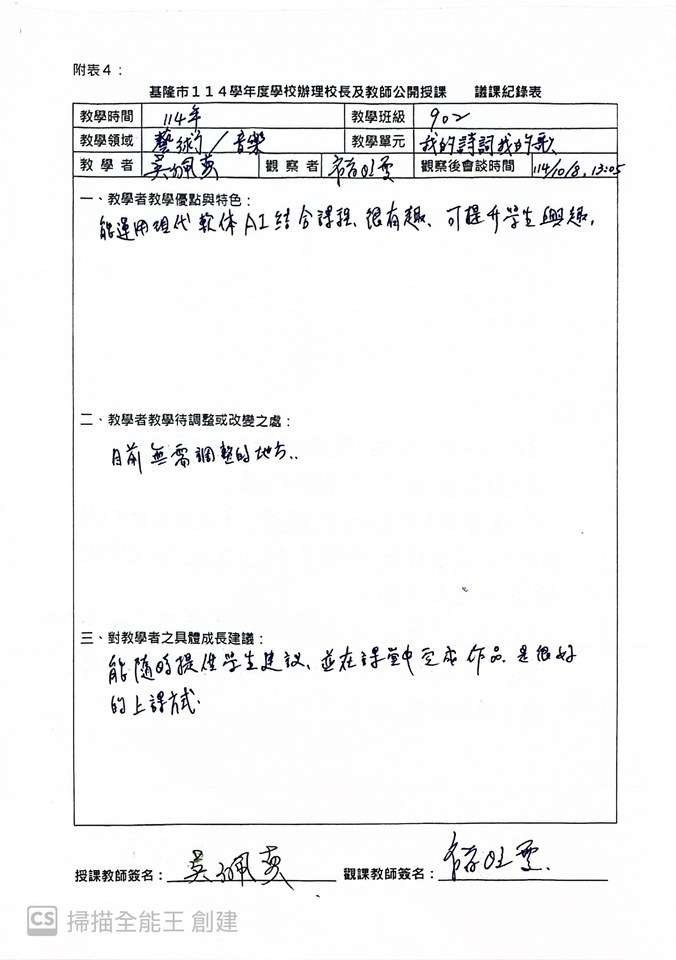 附表4：
基隆市114學年度學校辦理校長及教師公開授課　議課紀錄表
教學時間 114年 教學班級 902
教學領域 藝術／音樂 教學單元 我的詩詞我的歌
教學者 吳珮英 觀察者 觀察後會談時間 114/10/8, 13:05
一、教學者教學優點與特色：
能運用現代軟体AI結合課程、很有趣、可提升學生興趣,
二、教學者教學待調整或改變之處：
目前無需調整的地方..
三、對教學者之具體成長建議：
能隨時提供學生建議、並在課堂中完成作品 是很好
的上課方式.
授課教師簽名： 吳珮英 觀課教師簽名：
CS 掃描全能王 創建